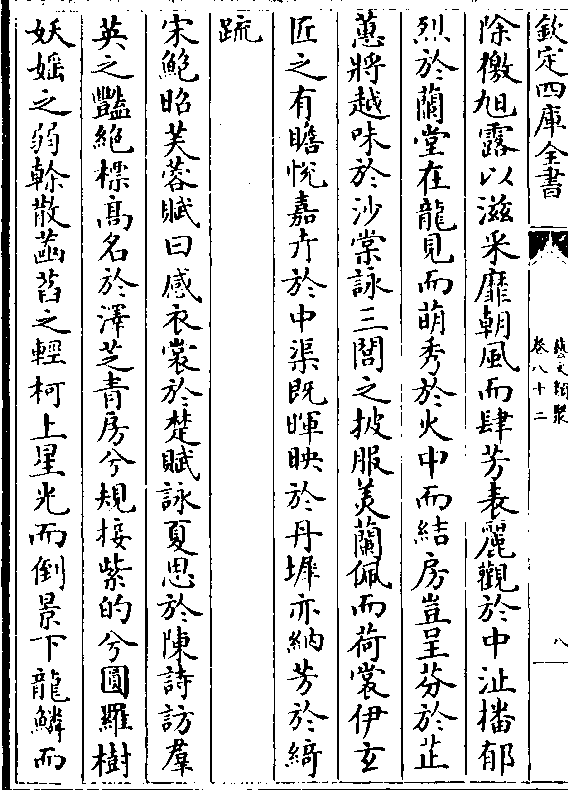 欽定四庫全書
藝文類聚
卷八十二
八
除檄旭露以滋采靡朝風而肆芳表麗觀於中沚播郁
烈於蘭堂在龍見而萌秀於火中而結房豈呈芬於芷
蕙將越味於沙棠詠三閭之披服美蘭佩而荷裳伊玄
匠之有瞻悅嘉卉於中渠既暉映於丹墀亦納芳於綺
疏
宋鮑昭芙蓉賦曰感衣裳於楚賦詠夏思於陳詩訪羣
英之豔絕標高名於澤芝青房兮規接紫的兮圓羅樹
妖媱之弱榦散菡萏之輕柯上星光而倒景下龍鱗而